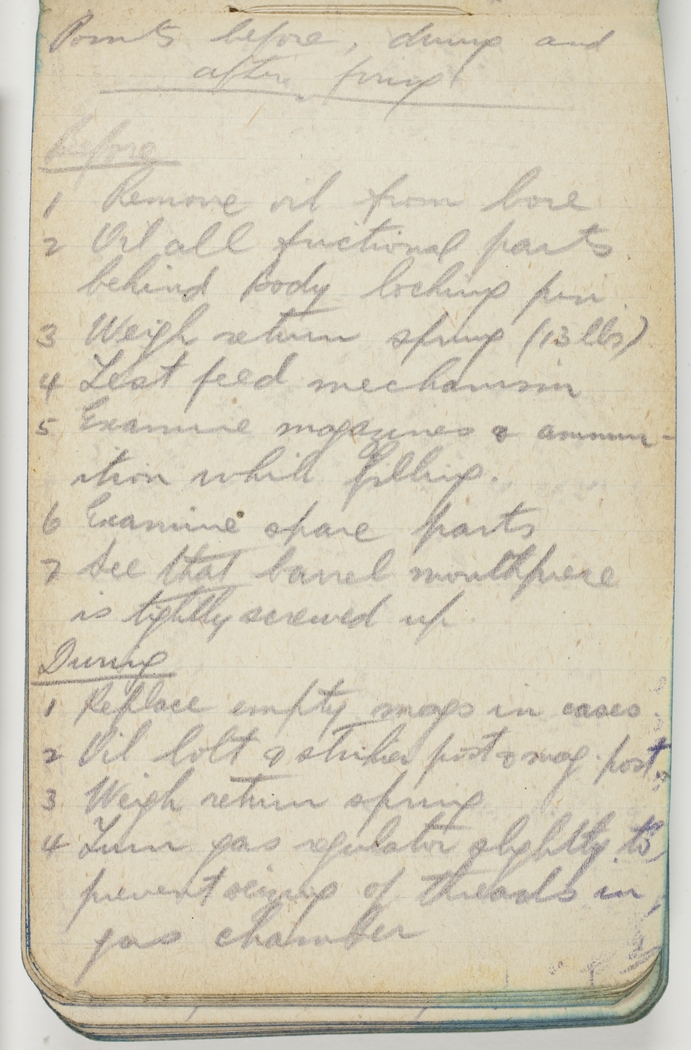 Points before, during and
after firing
Before
1 Remove oil from bore
2 Oil all frictional parts
behind body locking pin
3 Weigh return spring (13 lbs)
4 Test feed mechanism
5 Examine magazines & ammun-
ition while filling.
6 Examine spare parts
7 See that barrel mouthpiece
is tightly screwed up
During
1 Replace empty mags in cases
2 Oil bolt & striker post & mag. post.
3 Weigh return spring
4 Turn gas regulator slightly to
prevent seizing of threads in
gas chamber